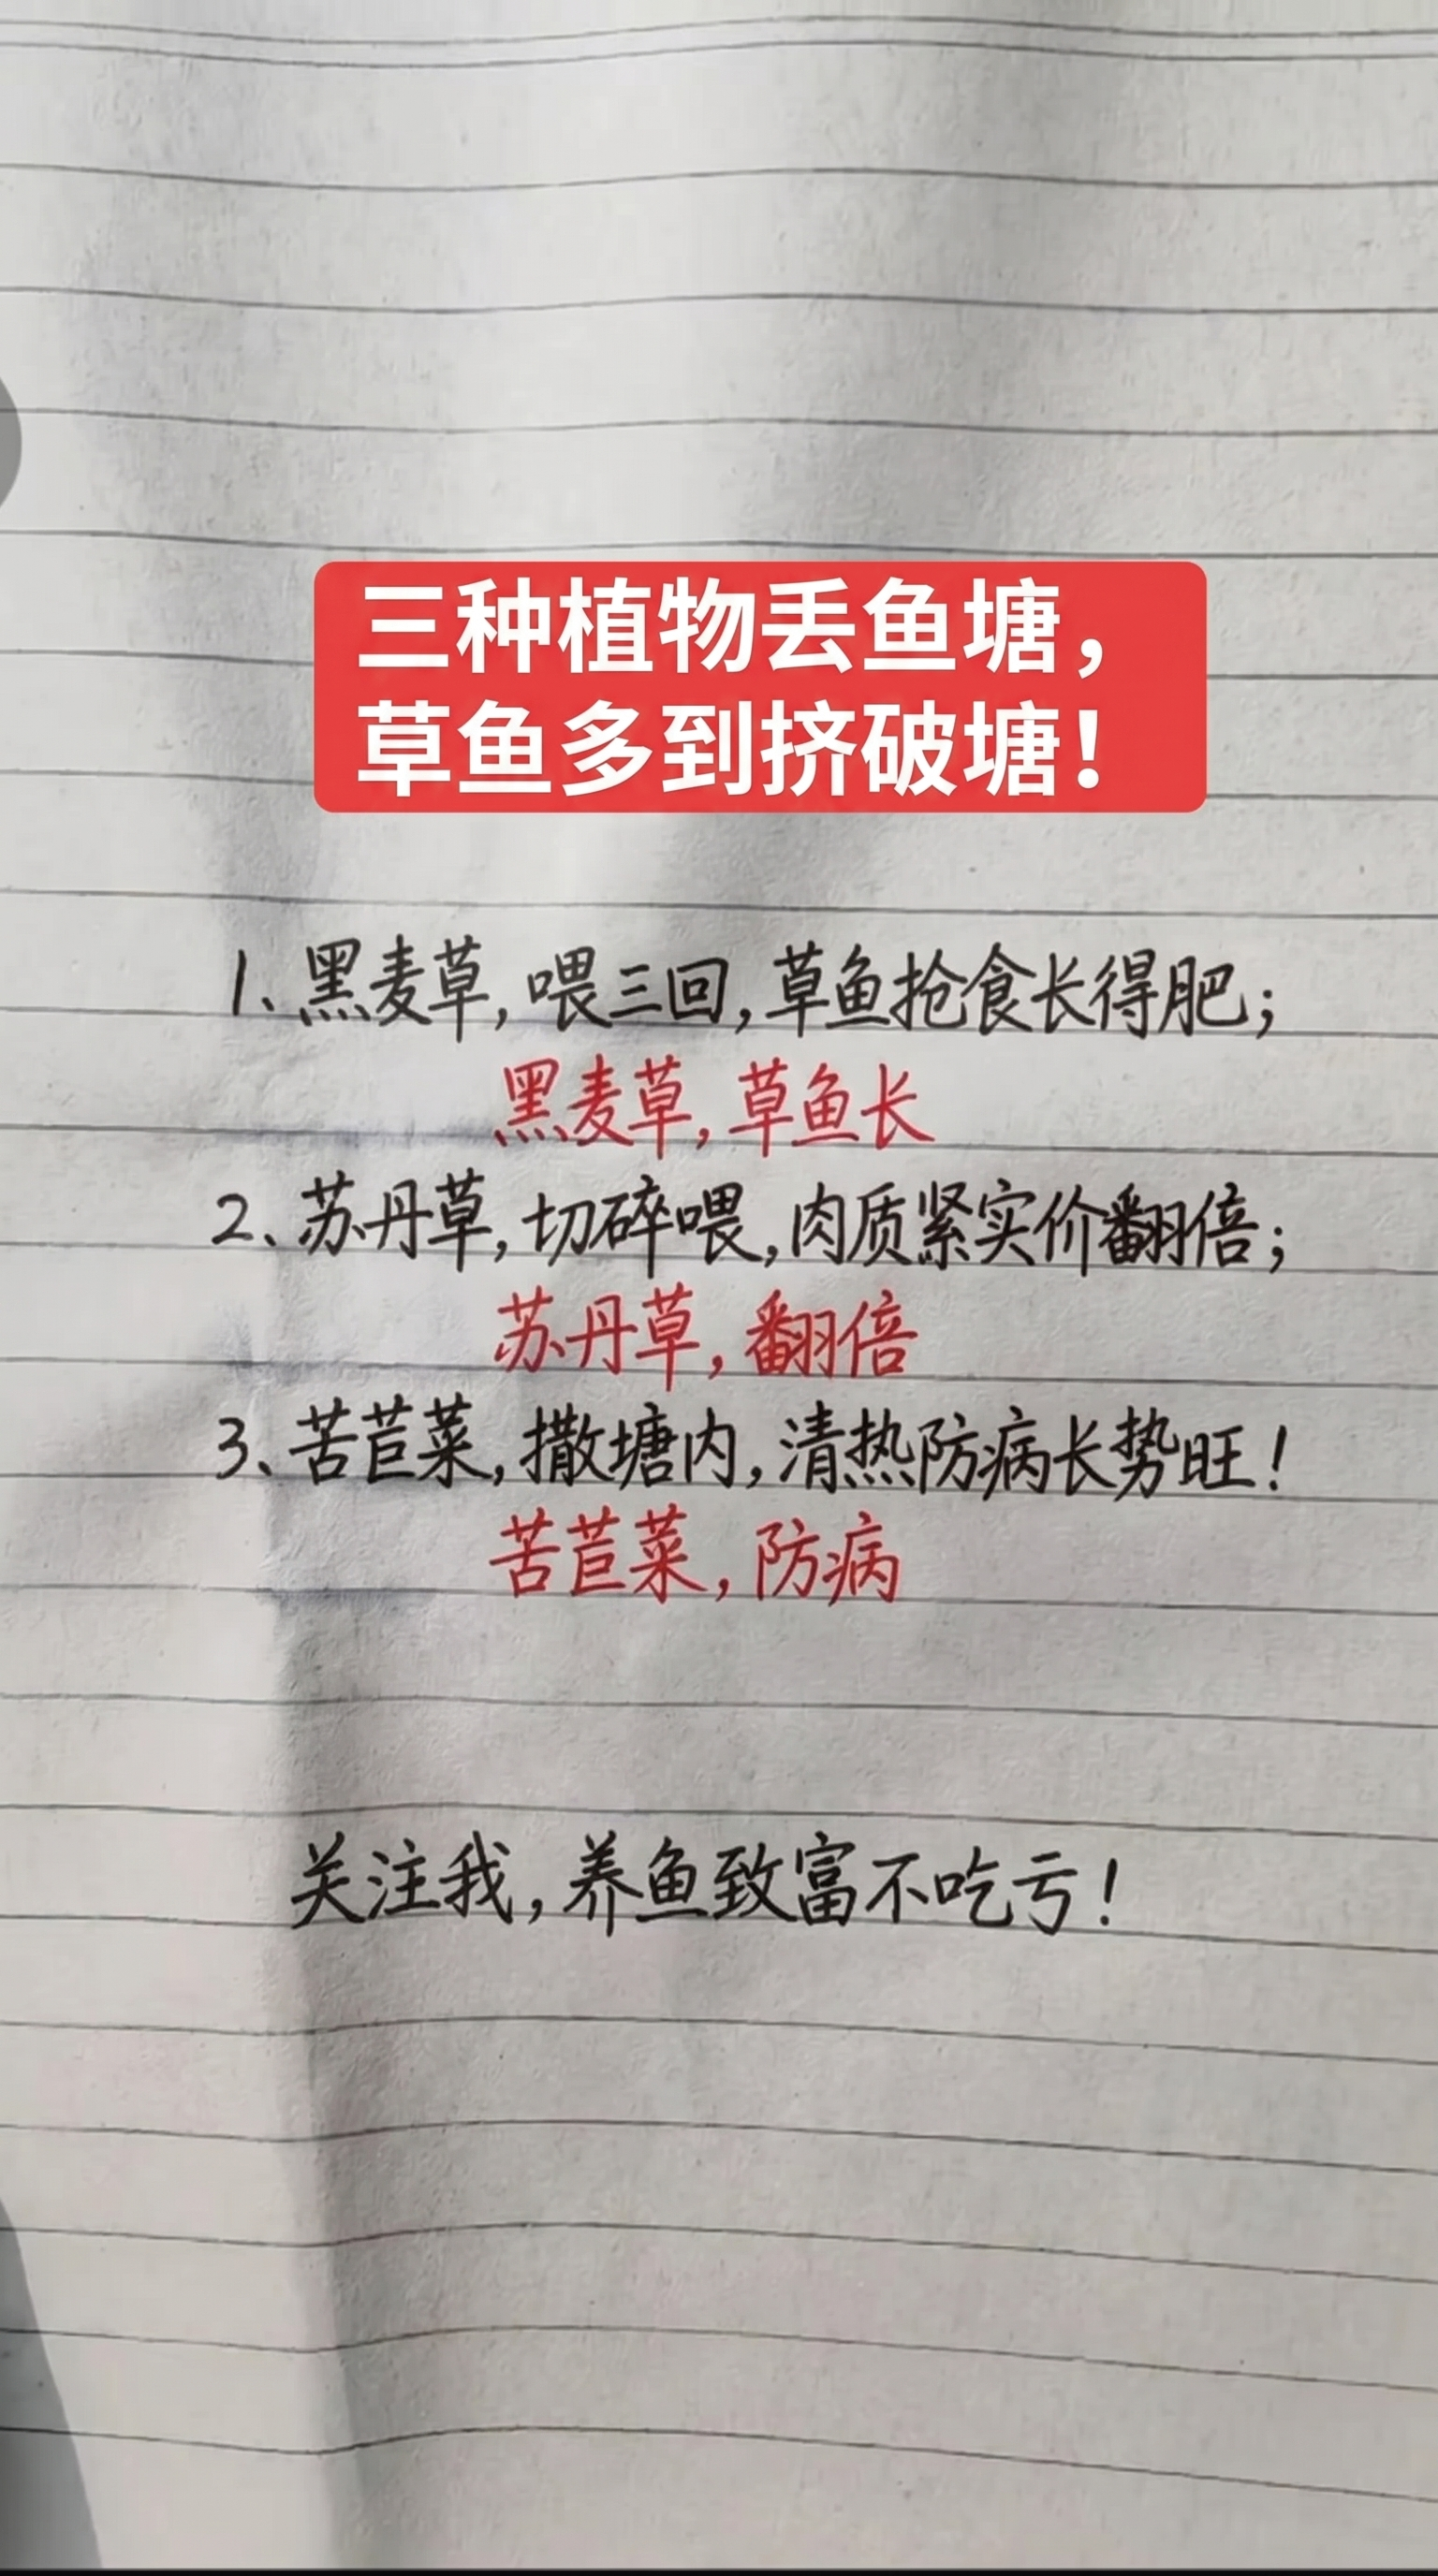 三种植物丢鱼塘，
草鱼多到挤破塘！
1、黑麦草，喂三回，草鱼抢食长得肥；
黑麦草，草鱼长
2、苏丹草，切碎喂，肉质紧实价翻倍；
苏丹草，翻倍
3、苦苣菜，撒塘内，清热防病长势旺！
苦苣菜，防病
关注我，养鱼致富不吃亏！